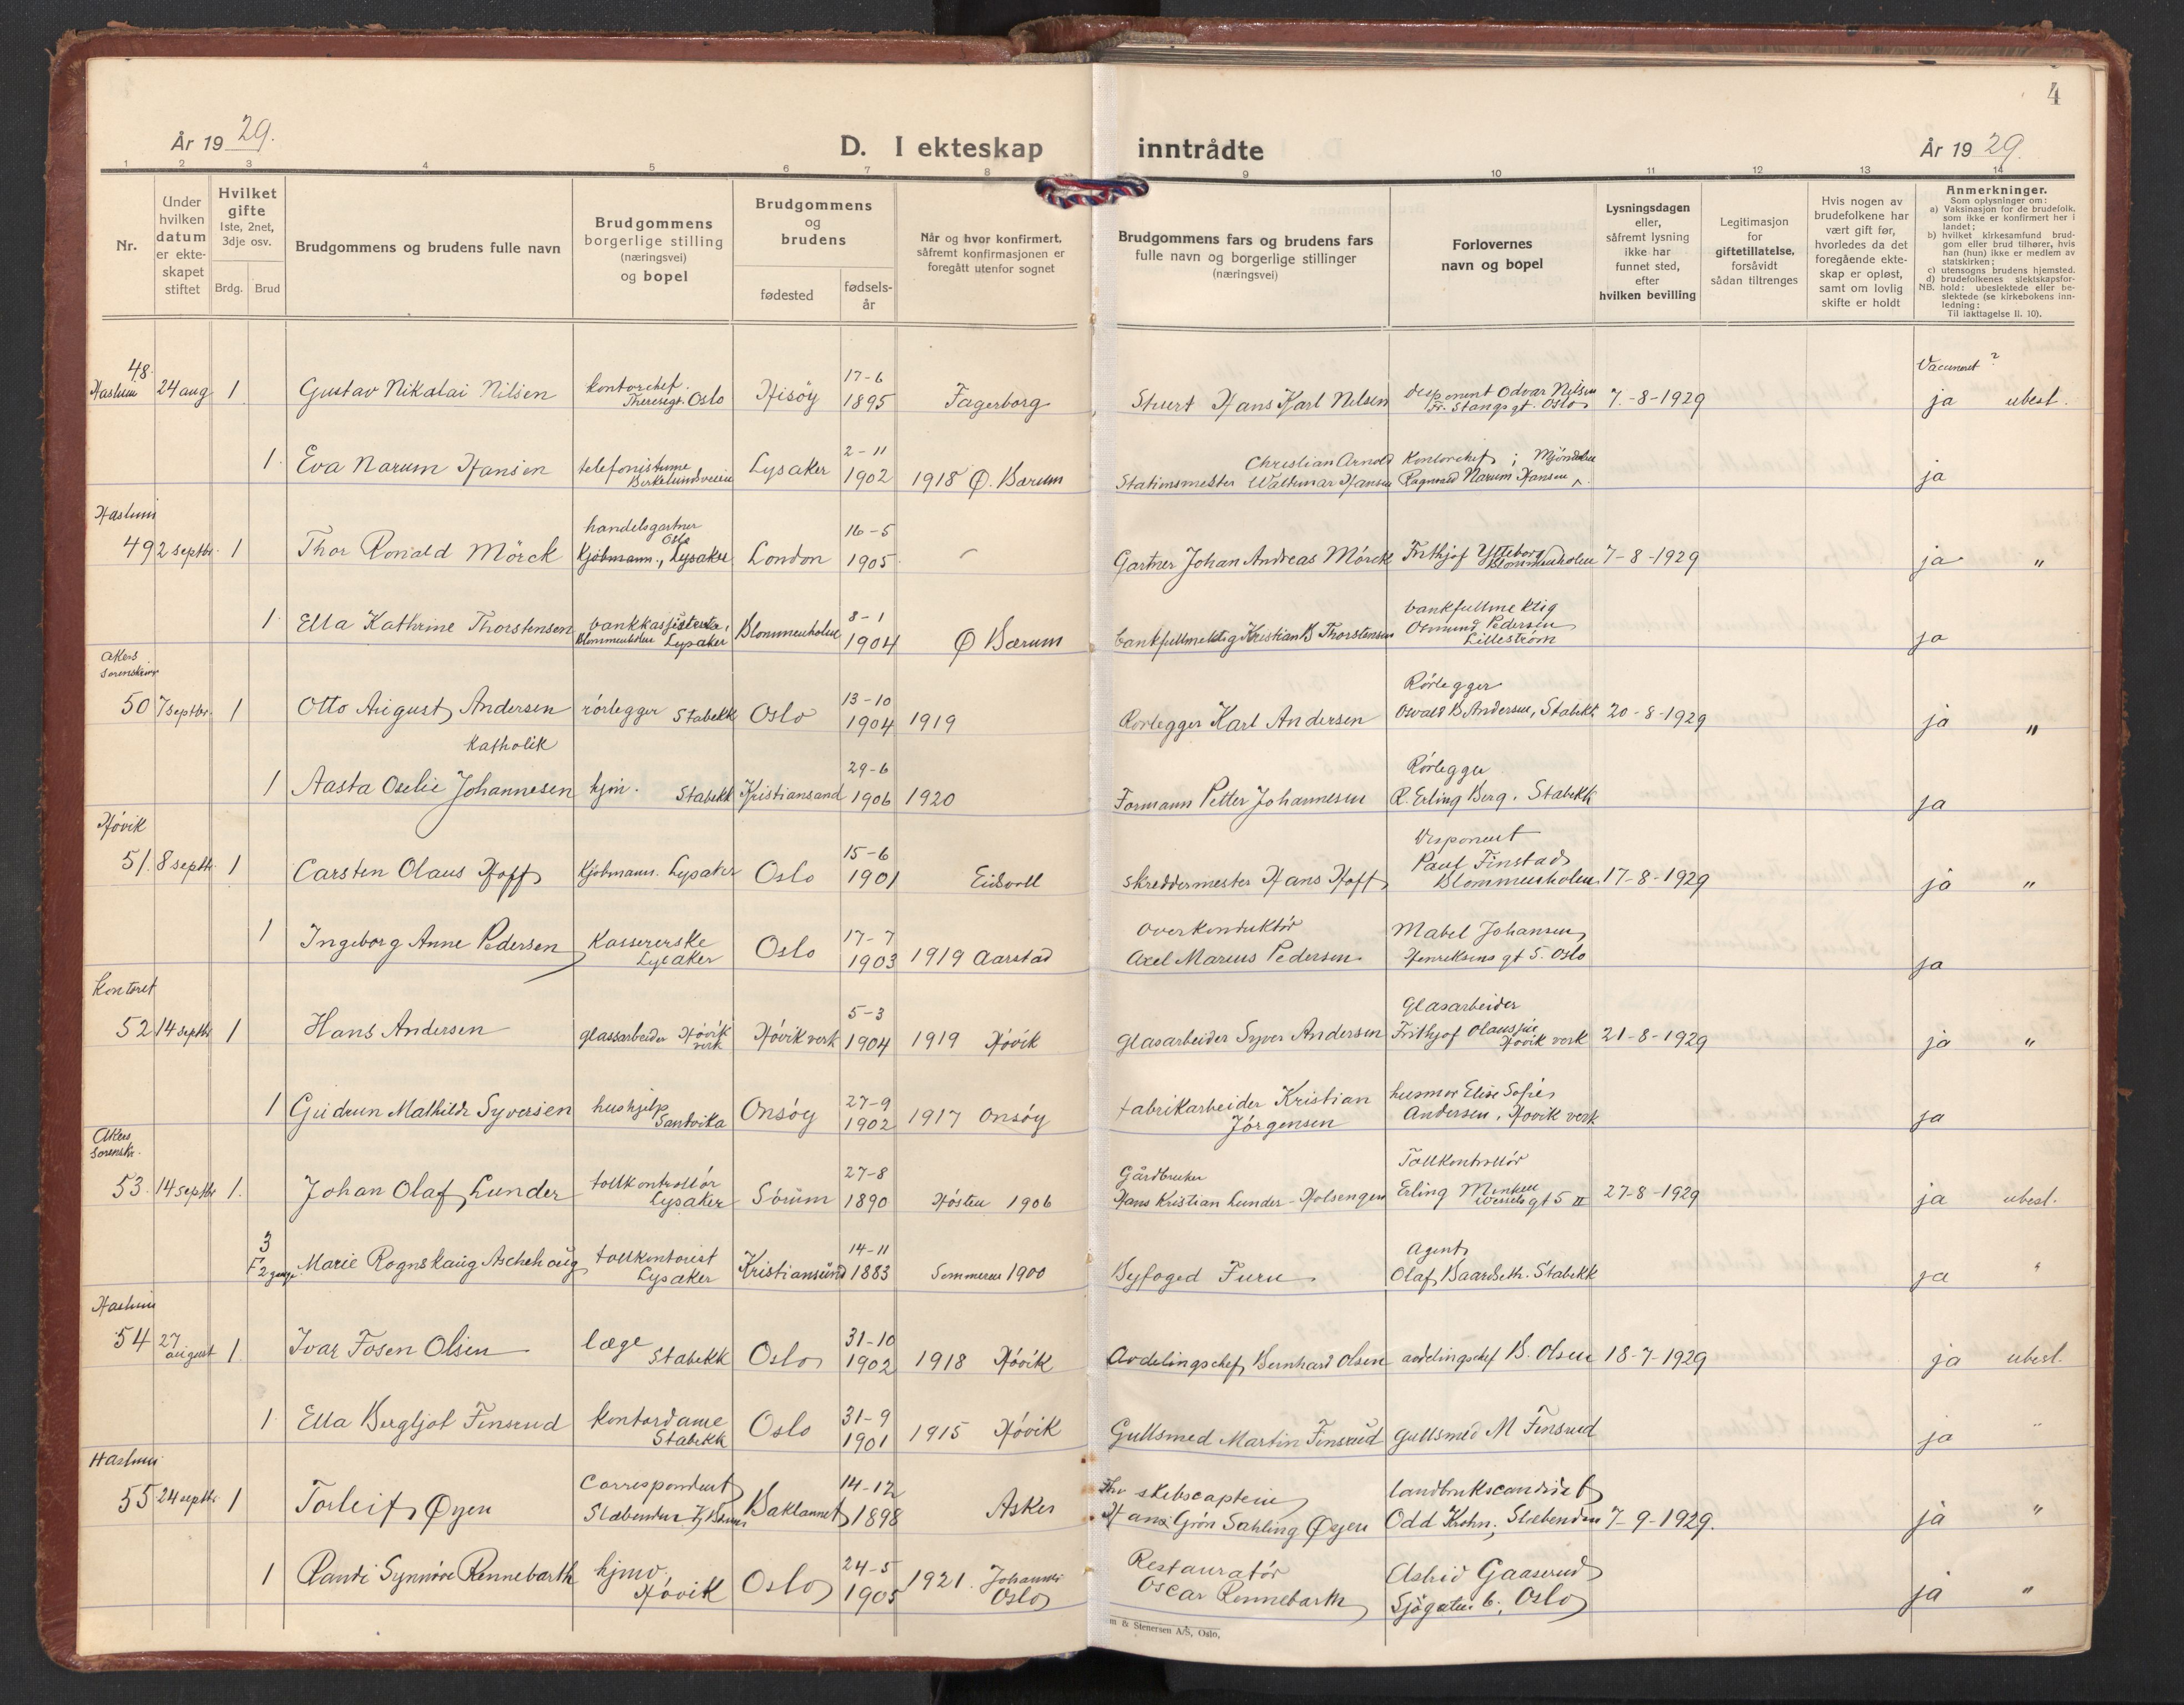 4
År 1929.
D. I ekteskap inntrådte
År 1929.
1 2 3 4 5 6 7 8 9 10 11 12 13 14
Nr.
Under hvilken datum er ekte-skapet stiftet
Hvilket gifte
1ste, 2net, 3dje osv.
Brdg. Brud
Brudgommens og brudens fulle navn
Brudgommens borgerlige stilling (næringsvei) og bopel
Brudgommens og brudens
fødested
fødsels-år
Når og hvor konfirmert, såfremt konfirmasjonen er foregått utenfor sognet
Brudgommens fars og brudens fars fulle navn og borgerlige stillinger (næringsvei)
Forlovernes navn og bopel
Lysningsdagen eller, såfremt lysning ikke har funnet sted, efter hvilken bevilling
Legitimasjon for giftetillatelse, forsåvidt sådan tiltrenges
Hvis nogen av brudefolkene har vært gift før, hvorledes da det foregående ekte-skap er opløst, samt om lovlig skifte er holdt
Anmerkninger.
Som oplysninger om:
a) Vaksinasjon for de brudefolk, som ikke er konfirmert her i landet;
b) hvilket kirkesamfund brud-gom eller brud tilhører, hvis han (hun) ikke er medlem av statskirken;
c) utensogns brudens hjemsted.
d) brudefolkenes slekiskapsfor-
NB. hold: ubeslektede eller be-slektede (se kirkebokens inn-ledning:
Til iakttagelse II. 10).
Vaccineret?
48. Haslum 24 aug 1 Gustav Nikolai Nilsen kontorchef. Theresegt. Oslo Hisöy 17-6 1895 Fagerborg Hans Karl Nilsen disponent Odvar Nilsen Fr. Stangs gt. Oslo 7-8-1929 ja ubesl.
1 Eva Narum Hansen telefonistinne Lysaker 2-11 1902 1918 Ø. Bærum Stationsmester Christian Arnold Waldemar Hansen Kontorchef Ragnvald Narum Hansen ja
Haslum
49 2 septbr. 1 Thor Ronald Mörck handelsgartner Oslo Kjöbmann., Lysaker London 16-5 1905 Gartner Johan Andreas Mörck Frithjof Ytteborg Blommenholm 7-8-1929 ja "
1 Ella Kathrine Thorstensen Blommenholm Lysaker Blommenholm 8-1 1904 Ø Bærum bankfullmektig Kristian B Thorstensen bankfullmektig Osmund Pedersen Lilleström ja
Akers Sorenskriver
50 7 septbr. 1 Otto August Andersen rörlegger Stabekk Oslo 13-10 1904 1919 Rörlegger Karl Andersen Rörlegger Osvald B. Andersen, Stabekk 20-8-1929 ja "
Katholik
1 Aasta Oselie Johannesen hjm. Stabekk Kristiansand 29-6 1906 1920 Formann Petter Johannesen Rörlegger R. Erling Berg. Stabekk ja
Hövik
51. 8 septbr. 1 Carsten Olaus Hoff Kjöbmann. Lysaker Oslo 15-6 1901 Eidsvoll skreddermester Hans Hoff Disponent Paul Finstad Blommenholm 17-8-1929 ja "
1 Ingeborg Anne Pedersen Kassererske Lysaker Oslo 17-7 1903 1919 Aarstad Overkonduktör Axel Marius Pedersen Mabel Johansen, Henriksens gt 5. Oslo ja
Kontoret
52 14 septbr 1 Hans Andersen glassarbeider Hövik verk Hövik verk 5-3 1904 1919 Hövik Glasarbeider Syver Andersen Glasarbeider Frithjof Olaussen Hövik verk 21-8-1929 ja "
1 Gudrun Mathilde Syversen hushjelp Sandvika Onsöy 27-9 1902 1917 Onsöy fabrikarbeider Kristian Jörgensen husmor Elise Sofie Andersen, Hövik verk ja
Akers Sorenskr.
53. 14 septbr 1. Johan Olaf Lunder tollkontrollör Lysaker Sörum 27-8 1890 Hösten 1906 Gårdbruker Hans Kristian Lunder - Holsengen Tollkontrollör Erling Wessels gt 5 II 27-8-1929 ja ubesl.
3 F 2 Marie Rognskaug Aschehoug tollkontorist Lysaker Kristiansund 14-11 1883 Sommeren 1900 Byfoged Furu. Agent Olaf Baardseth. Stabekk ja "
Haslum
54 27 august 1. Ivar Fosen Olsen læge Stabekk Oslo 31-10 1902 1918 Hövik Avdelingschef Bernhard Olsen avdelingschef B. Olsen 18-7-1929 ja ubesl.
1. Ella Bergljot Finsrud kontordame Stabekk Oslo 31-9 1901 1915 Hövik Gullsmed Martin Finsrud gullsmed M Finsrud ja "
Haslum
55 24 septbr 1 Torleif Øyen Correspondent Slæbenden Baklannet 14-12 1898 Asker skibscaptein Hans Grön Sahling Øyen landbrukscandidat Odd Krohn; Slæbenden 7-9-1929. ja "
1 Randi Synnöve Rennebarth hjmv. Hövik Oslo 24-5 1905 1921. Johannes Oslo Restauratör Oscar Rennebarth Astrid Gaaserud Sjögaten 6; Oslo ja "
m & Stenersen A/S, Oslo,